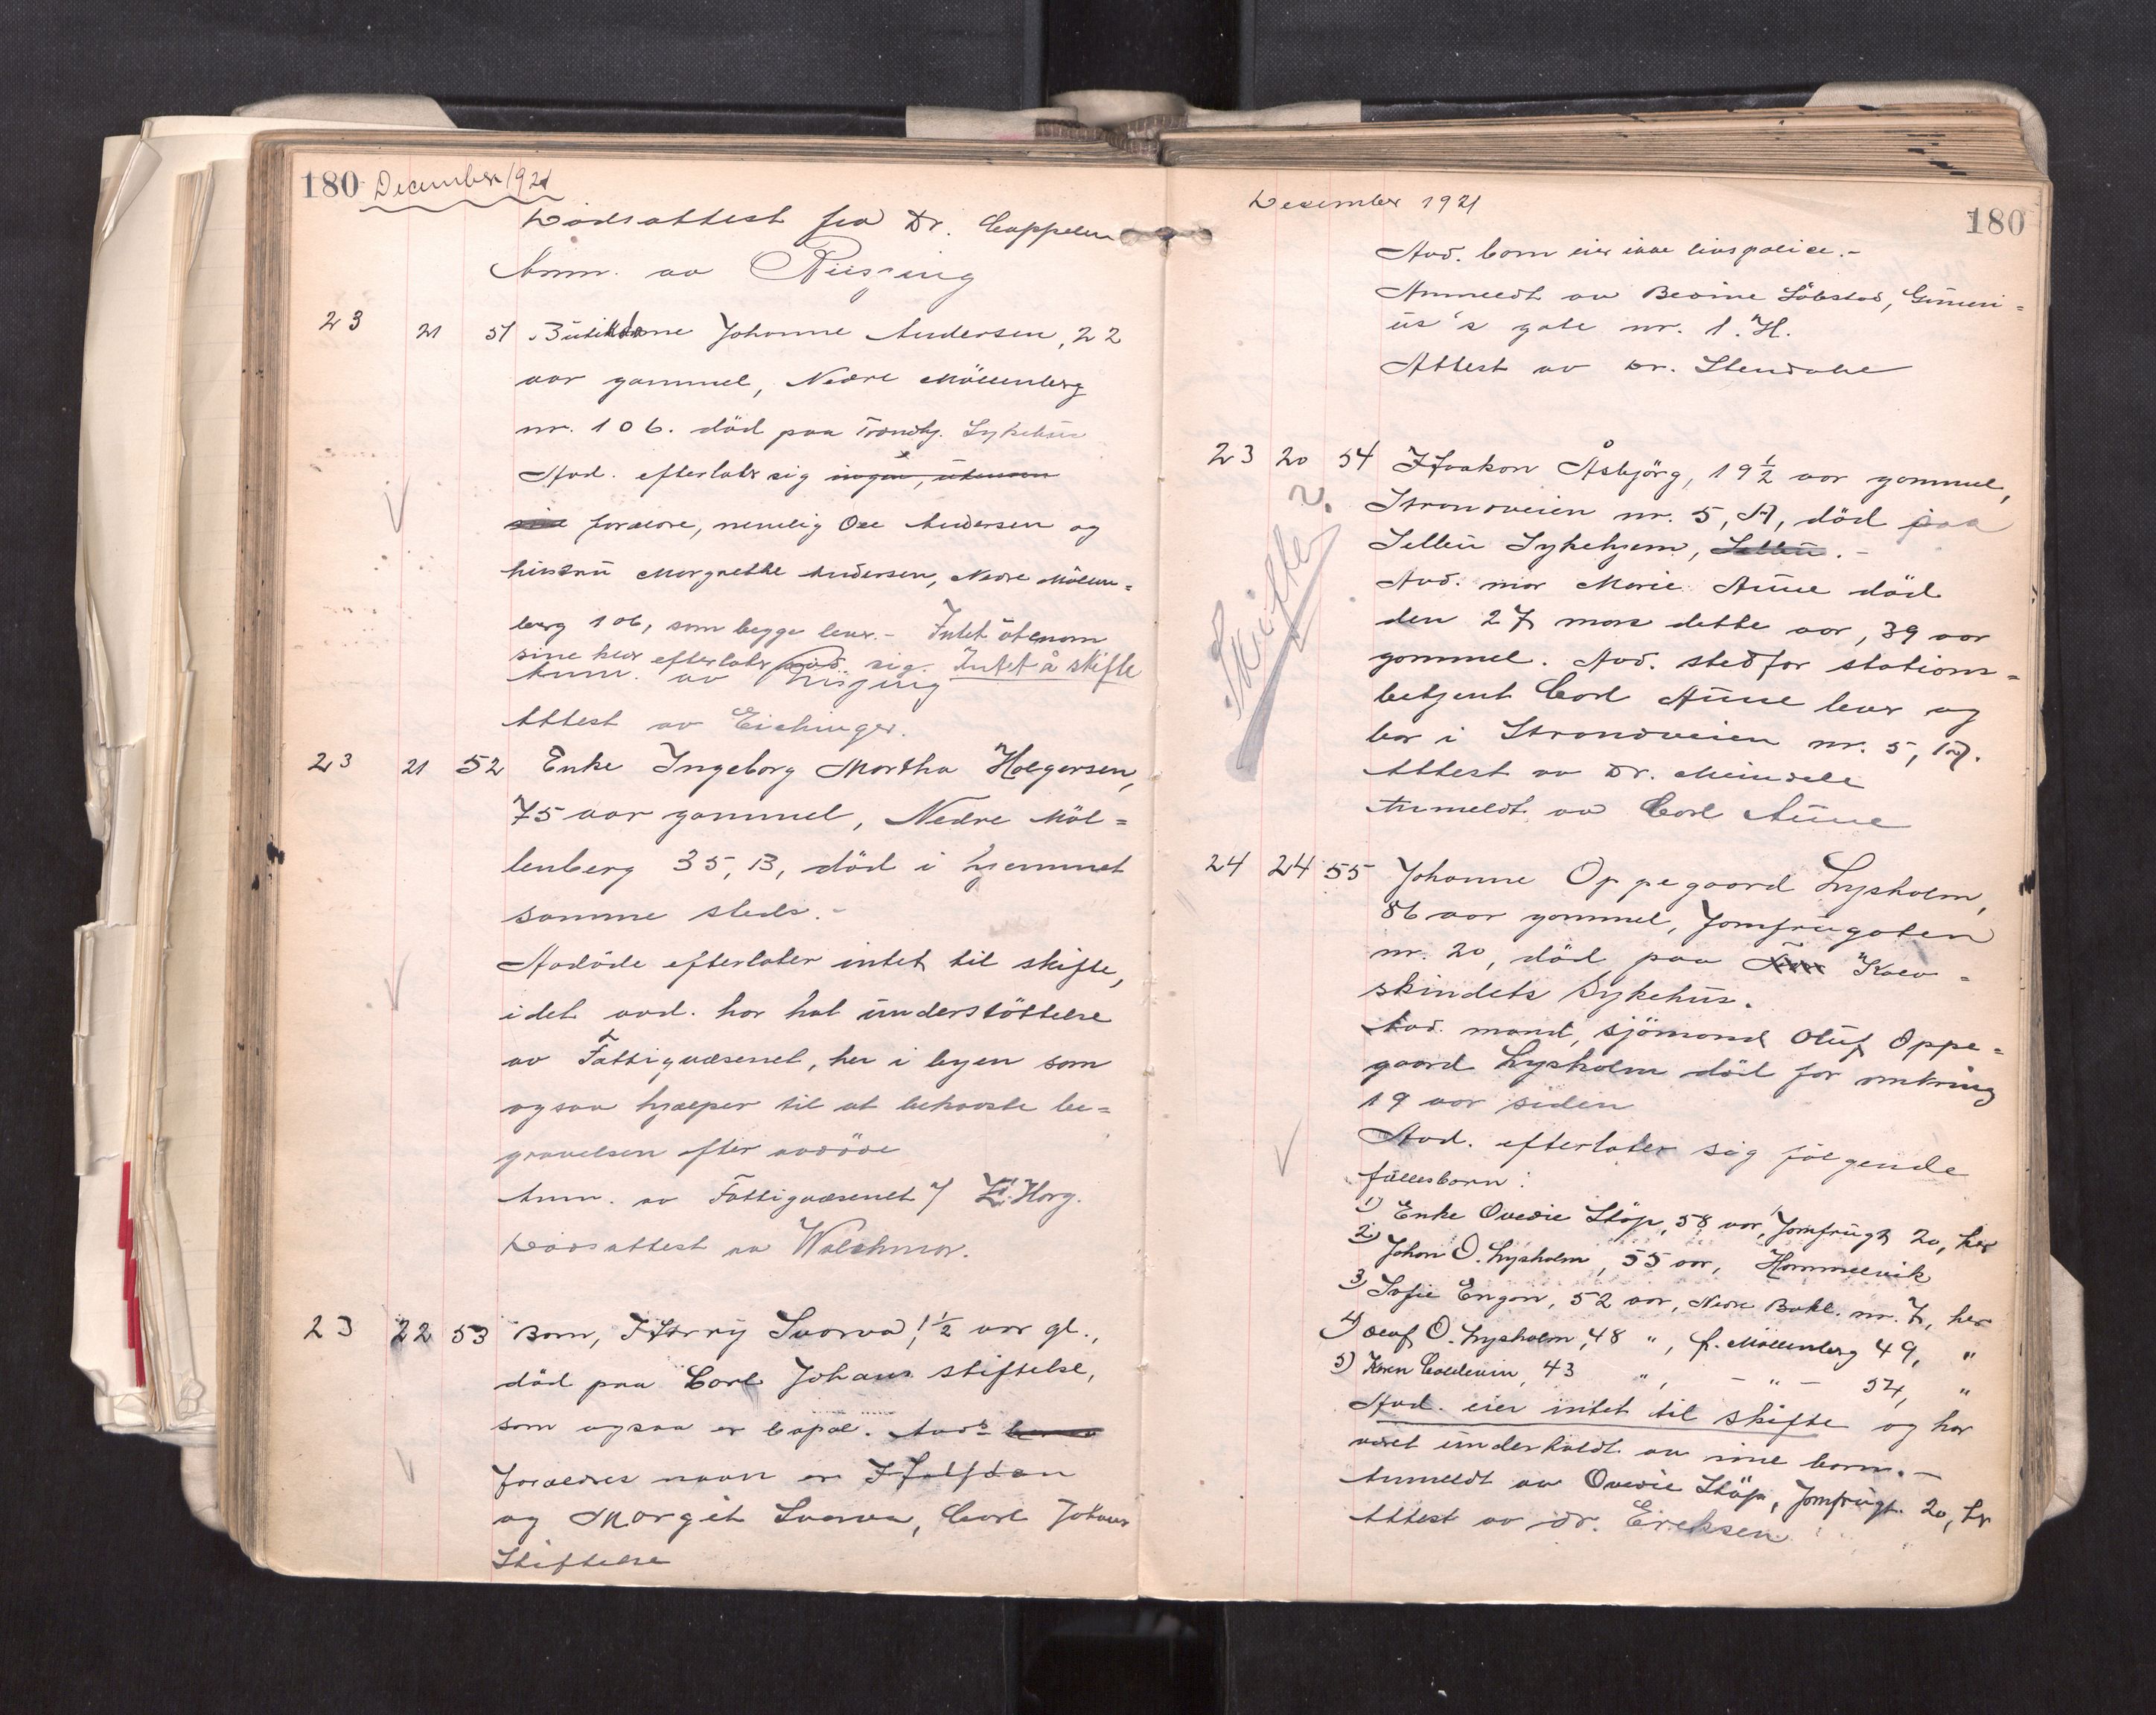 180 December 1921
Dödsattest fra Dr. Cappelen
Anm. av Riising
23 21 51 Butikkdame Johanne Andersen, 22
aar gammel, Nedre Möllenberg
nr. 106. död paa Trondhj. Sykehus
Avd. efterlater sig ingen, utenom
sine forældre, nemlig Ole Andersen og
hustru Margrethe Andersen, Nedre Möllen=
berg 106, som begge lever.- Intet utenom
sine klær efterlater avd. sig. Intet å skifte
Anm. av Riising
Attest av Eichinger.
23 21 52 Enke Ingeborg Martha Holgersen,
75 aar gammel, Nedre Möl=
lenberg 35, B, död i hjemmet
samme steds.-
Avdöde efterlater intet til skifte,
idet avd. har hat understöttelse
av Fattigvæsenet, her i byen som
ogsaa hjælper til at bekoste be=
gravelsen efter avdöde
Anm. av Fattigvæsenet v/ E. Horg.
Dödsattest av Walehmar.
23 22 53 Barn, Harry Svorva, 1 1/2 aar gl.,
död paa Carl Johans stiftelse,
som ogsaa er bopæl. Avds
forældres navn er Halfdan
og Margit Svorva, Carl Johans
Stiftelse
Desember 1921 180
Avd. barn eier ikke livspolice.-
Anmeldt av Bedine Löbstad, Gunneri=
us's gate nr. 1. H.
Attest av Dr. Stendahl
23 20 54 Haakon Åsbjörg, 19 1/2 aar gammel,
Strandveien nr. 5, A, död paa
Selbu Sykehjem, Selbu.-
Avd. mor Marie Aune död
den 27 mars dette aar, 39 aar
gammel. Avd. stedfar stations=
betjent Carl Aune lever og
bor i Strandveien nr. 5, A.
Attest av Dr. Meindele
Anmeldt av Carl Aune
Skifte ?
24 24 55 Johanne Oppegaard Lysholm,
86 aar gammel, Jomfrugaten
nr. 20, död paa Kalv=
skindets Sykehus.
Avd. mand, sjömand Oluf Oppe=
gaard Lysholm död for omkring
19 aar siden
Avd. efterlater sig følgende
fællesbarn:
1) Enke Ovedie Stöp, 58 aar, Jomfrugt 20, her
2) Johan O. Lysholm, 55 aar, Hommelvik
3) Sofie Engan, 52 aar, Nedre Bakl. nr. 7, her
4) Oluf O. Lysholm, 48 ", f. Möllenberg 49, "
5) Karen Coldevin, 43 ", - " - 54, "
Avd. eier intet til skifte og har
været underholdt av sine barn.-
Anmeldt av Ovedie Stöp, Jomfrugt. 20, her
Attest av dr. Ericksen